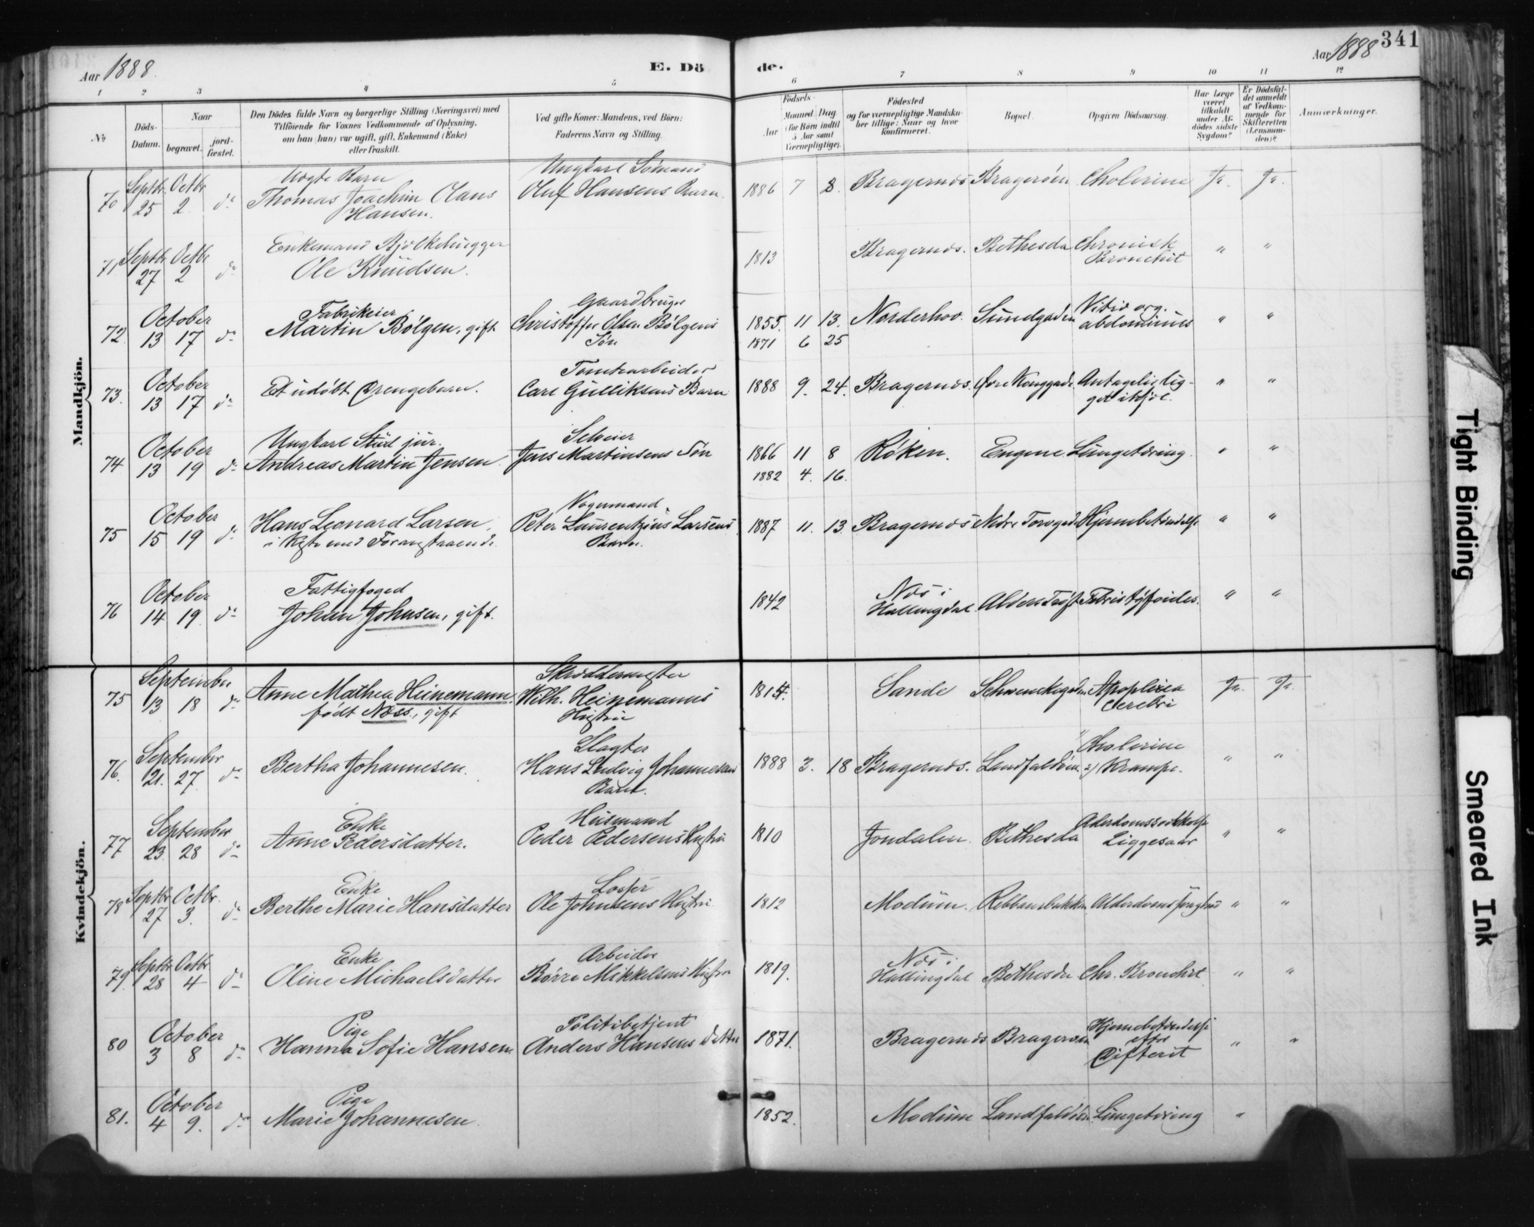 Aar 1888.
E. Dö
de.
Aar 1888
341
1 2 3 4 5 6 7 8 9 10 11 12
No
Döds-Datum.
Naar
begravet.
jord-fæstet.
Den Dödes fulde Navn og borgerlige Stilling (Næringsvei) med
Tilföiende for Voxnes Vedkommende af Oplysning,
om han (hun) var ugift, gift, Enkemand (Enke)
eller fraskilt.
Ved gifte Koner: Mandens, ved Börn:
Faderens Navn og Stilling.
Födsels-
Aar
Maaned
Dag
(for Börn indtil 5 Aar samt Værnepligtige).
Födested
og for værnepligtige Mandsku-
ber tillige: Naar og hvor
konfirmeret.
Bopæl.
Opgiven Dödsaarsag.
Har Læge været tilkaldt under Af-dödes sidste Sygdom?
Er Dödsfal-det anmeldt af Vedkom-mende for Skifteretten (Lensman-den)?
Anmærkninger.
Mandkjön.
70 Septbr. 25 Octbr. 2. do Uægte Barn Thomas Joachim Claus Hansen. Ungkarl Sömand Oluf Hansens Barn. 1886 7 8. Bragernæs Bragerøen Cholerine Ja. Ja.
71 Septbr. 27 Octbr. 2 do Enkemand Ole Knudsen. 1813 Bragernæs. Bethesda Chronisk Bronchit " "
72 October 13 17 do Martin Bölgen, gift Gaardbruger Christoffer Olsen Bölgens Sön 1855. 11 13. Norderhov. Sundgaden Vitio org. abdominis " "
1871 6 25
73. October 13 17 do Et udöbt Drengebarn. Tomtearbeider Carl Gulliksens Barn 1888 9. 24. Bragernæs. " "
74 October 13 19 do Ungkarl Stud. jur. Andreas Martin Jensen Jens Martinsens Sön 1866 11 8 Röken. Engene Lungetæring. " "
1882 4. 16.
75 October 15 19 do Hans Leonard Larsen, Vognmand Peter Laurentzius Larsens Barn. 1887 11. 13. Bragernæs Nedre Torvgad Hjernebetændelse " "
76 October 14 19. do Fattigfoged Johan Johnsen, gift. 1842 Næs i Hallingdal Febris tyfoides. " "
Kvindekjön.
75 September 13 18 do Anne Mathea Heinemann födt Næss, gift Skræddermester Wilh. Heinemanns Hustru 1815. Sande Apoplexia Cerebri Ja. Ja.
76. September 21. 27. do Bertha Johannesen. Slagter Hans Ludvig Johannesens Barn. 1888 3. 18 Bragernæs. Landfaldöen Cholerine 2) Krampe. " "
77 September 23. 28 do Enke Anne Pedersdatter. Huusmand Peder Pedersens Hustru 1810 Jondalen. Bethesda Liggesaar " "
78 Septbr. 27 Octbr. 3. do Enke Berthe Marie Hansdatter Ole Johnsens Hustru 1812 Modum. " "
79. Septbr. 28 Octbr. 4 do Enke Oline Michaelsdatter Arbeider Börre Mikkelsens Hustru 1819. Næs i Hallingdal Bethesda Chr. Bronchit " "
80 October 3 8 do Pige Hanna Sofie Hansen. Politibetjent Anders Hansens Datter 1871. Bragernæs Bragerøen Hjernebetændelse efter Difterit " "
81. October 4 9. do Pige Marie Johannesen. 1852. Modum Landfaldöen Lungetæring "
Tight Binding
Smeared Ink